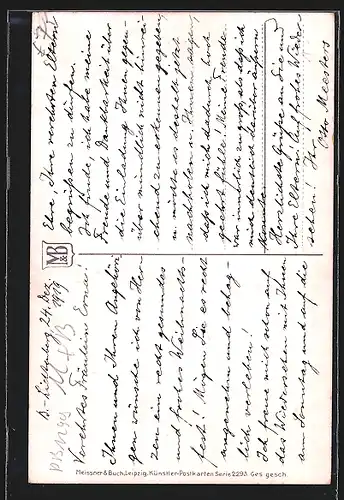 B.-Lichtenberg, 24. Dez.
1919
Verehrtes Fräulein Erna!
Ihnen und Ihren Angehöri-
gen wünsche ich von Her-
zen ein recht gesundes
und frohes Weihnachts-
fest! Mögen Sie es recht
angenehm und behag-
lich verleben!
Ich freue mich schon auf
das Wiedersehen mit Ihnen
am Sonntag und auf die
Ehre, Ihre verehrten Eltern
begrüßen zu dürfen.
Ich finde, ich habe meine
Freude und Dankbarkeit über
die Einladung Ihnen gegen-
über mündlich nicht hinrei-
chend zu erkennen gegeben,
u. möchte es deshalb jetzt
nachholen u. Ihnen sagen,
daß ich mich dadurch hoch
geehrt fühle! Meine Freude
war wirklich zu groß, als daß ich
mich derzeit darüber äußern
konnte.
Herzlichste Grüße an Sie und
Ihre Eltern! Auf frohes Wieder-
sehen! Ihr
Otto Meesters
M & B
M+B
Meissner & Buch, Leipzig. Künstler-Postkarten Serie 2293. Ges. gesch.